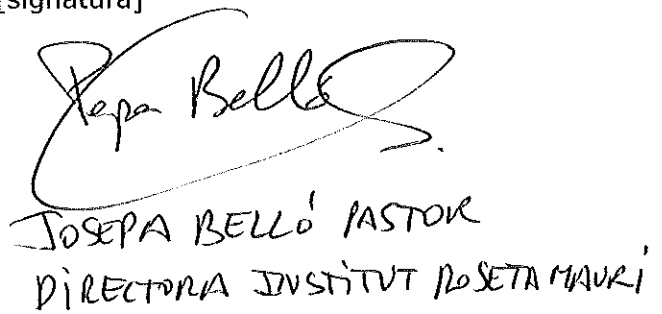 [signatura]
Pepa Belló
JOSEPA BELLÓ PASTOR
DIRECTORA INSTITUT ROSETA MAURI